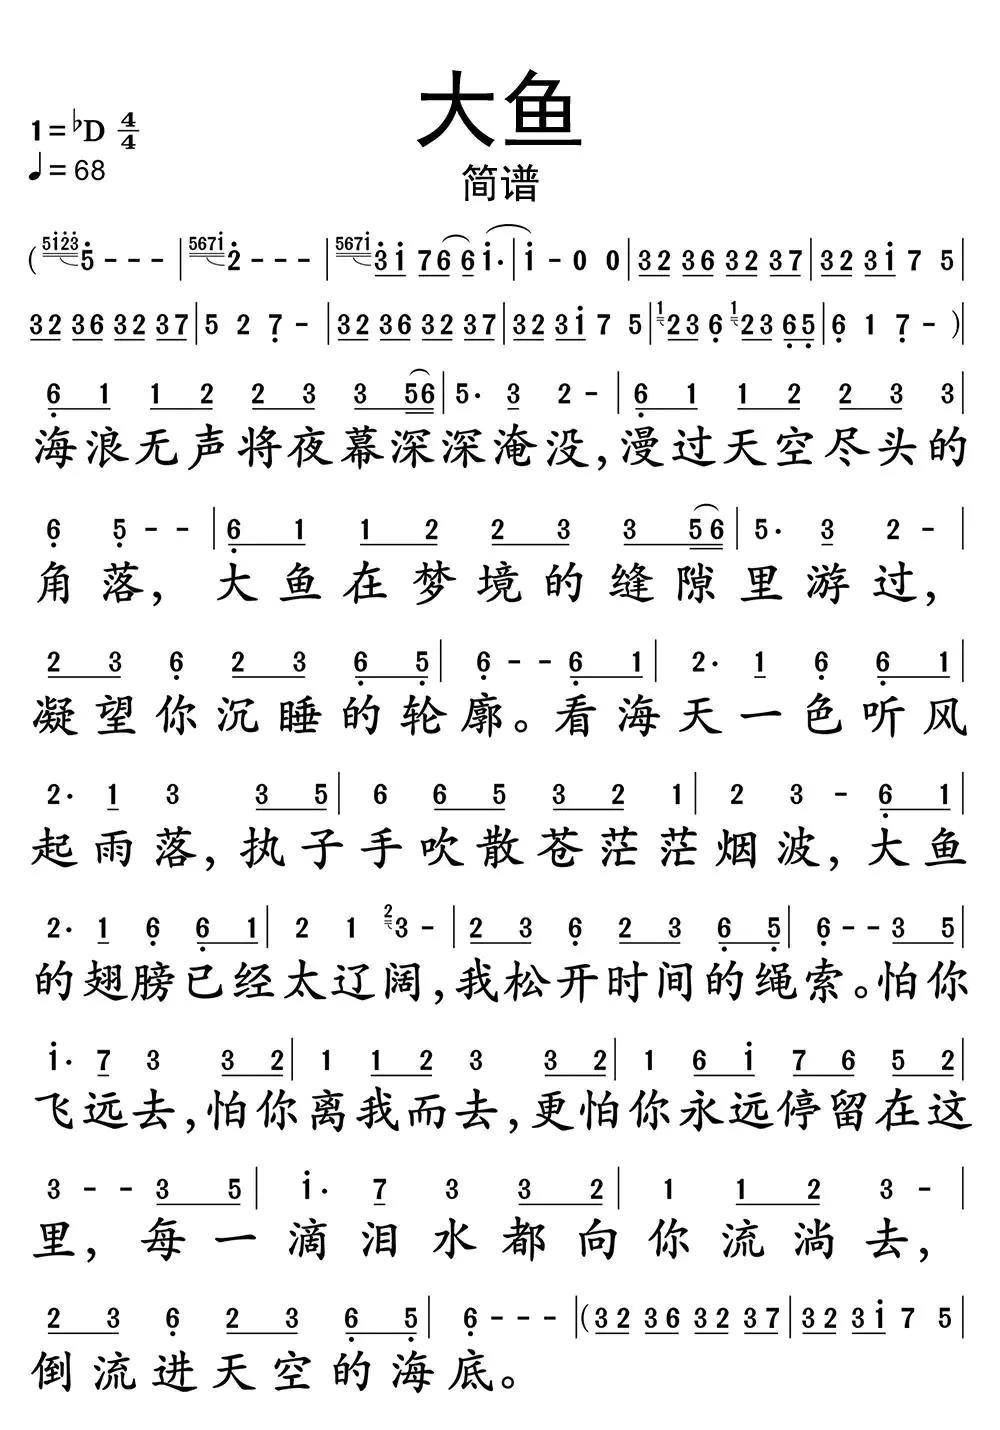 大鱼
简谱
1=♭D 4/4
♩=68
( 5i̇2̇3̇ 5̇ - - - | 567i̇ 2̇ - - - | 567i̇ 3̇ i̇ 7 6 6 i̇· | i̇ - 0 0 | 32 36 32 37 | 32 3i̇ 7 5 |
32 36 32 37 | 5 2 7̣ - | 32 36 32 37 | 32 3i̇ 7 5 | 1 23 6̣ 1 23 6̣5̣ | 6̣ 1 7̣ - ) |
6̣ 1 1 2 2 3 3 56 | 5· 3 2 - | 6̣ 1 1 2 2 3 3
海浪无声将夜幕深深淹没,漫过天空尽头的
6̣ 5̣ - - | 6̣ 1 1 2 2 3 3 56 | 5· 3 2 - |
角落,大鱼在梦境的缝隙里游过,
2 3 6̣ 2 3 6̣ 5̣ | 6̣ - - 6̣ 1 | 2· 1 6̣ 6̣ 1 |
凝望你沉睡的轮廓。看海天一色听风
2· 1 3 3 5 | 6 6 5 3 2 1 | 2 3 - 6̣ 1 |
起雨落,执子手吹散苍茫茫烟波,大鱼
2· 1 6̣ 6̣ 1 | 2 1 2 3 - | 2 3 6̣ 2 3 6̣ 5̣ | 6̣ - - 3 5 |
的翅膀已经太辽阔,我松开时间的绳索。怕你
i̇· 7 3 3 2 | 1 1 2 3 3 2 | 1 6 i̇ 7 6 5 2 |
飞远去,怕你离我而去,更怕你永远停留在这
3 - - 3 5 | i̇· 7 3 3 2 | 1 1 2 3 - |
里,每一滴泪水都向你流淌去,
2 3 6̣ 2 3 6̣ 5̣ | 6̣ - - - | (32 36 32 37 | 32 3i̇ 7 5 |
倒流进天空的海底。